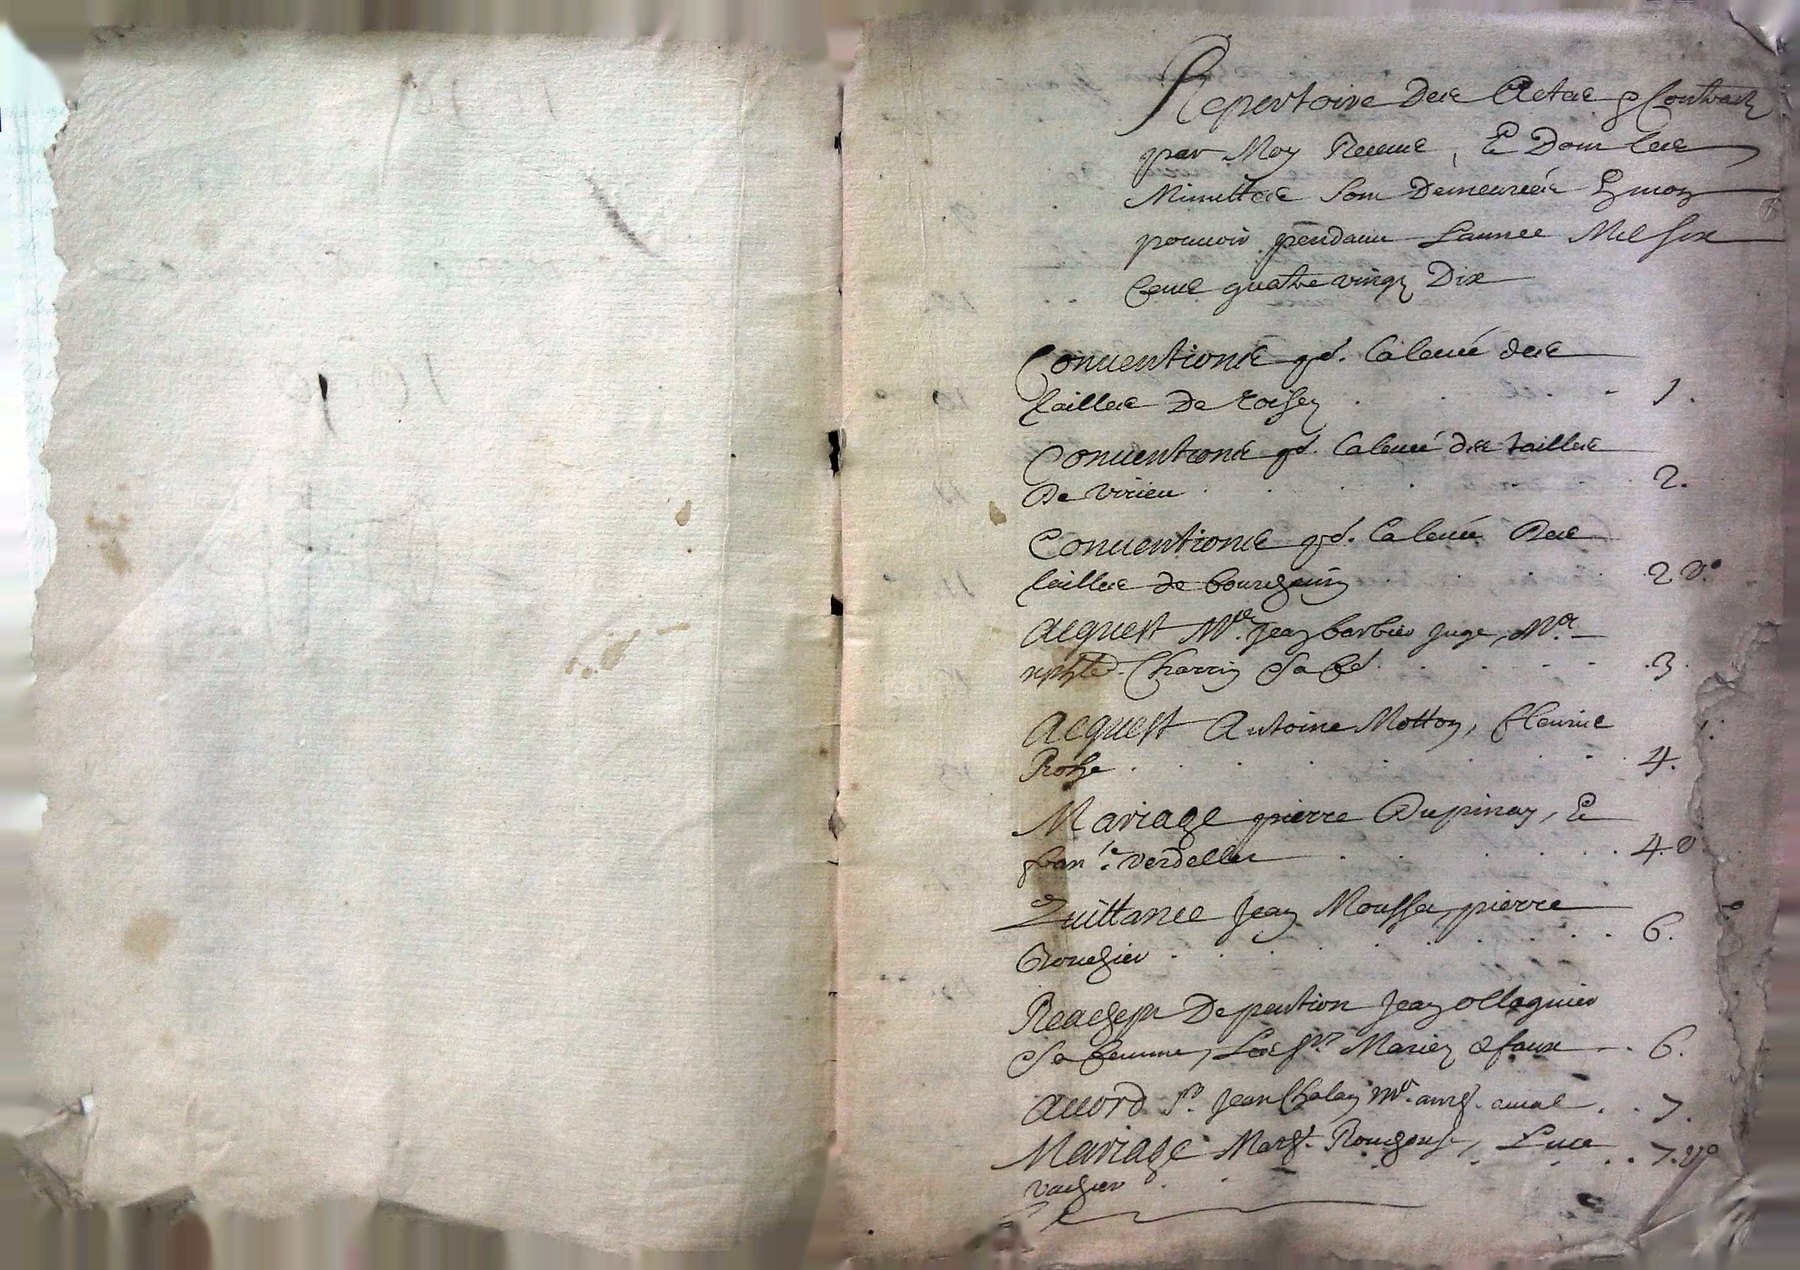 Repertoire Des Actes & Contracts
par Moy Receus, Et Dont Les
Minuttes Sont Demeurées En mon
pouvoir pendant L'année Mil six
Cent quatre vingt Dix
Conventions pr. La levée des
tailles De Roisey . . . 1.
Conventions pr. La levée des tailles
De virieu . . . 2.
Conventions pr. La levée Des
tailles de bourgain . . . 2 v°
Acquest Me. Jean barbier Juge, Mr
Charrin Sa . . . 3
Acquest Antoine Motton, fleurie
. . . 4.
Mariage pierre Dupinay, Et
verdellet . . . 4. v
Quittance Jean Mousset, pierre
. . . 6.
Reachept De pention Jean ollagnier
Sa femme, Les Srs Mariez . . . 6.
Accord Sr. Jean Chalay Mr. . . 7.
Mariage Luce
vacher . . . 7. v°